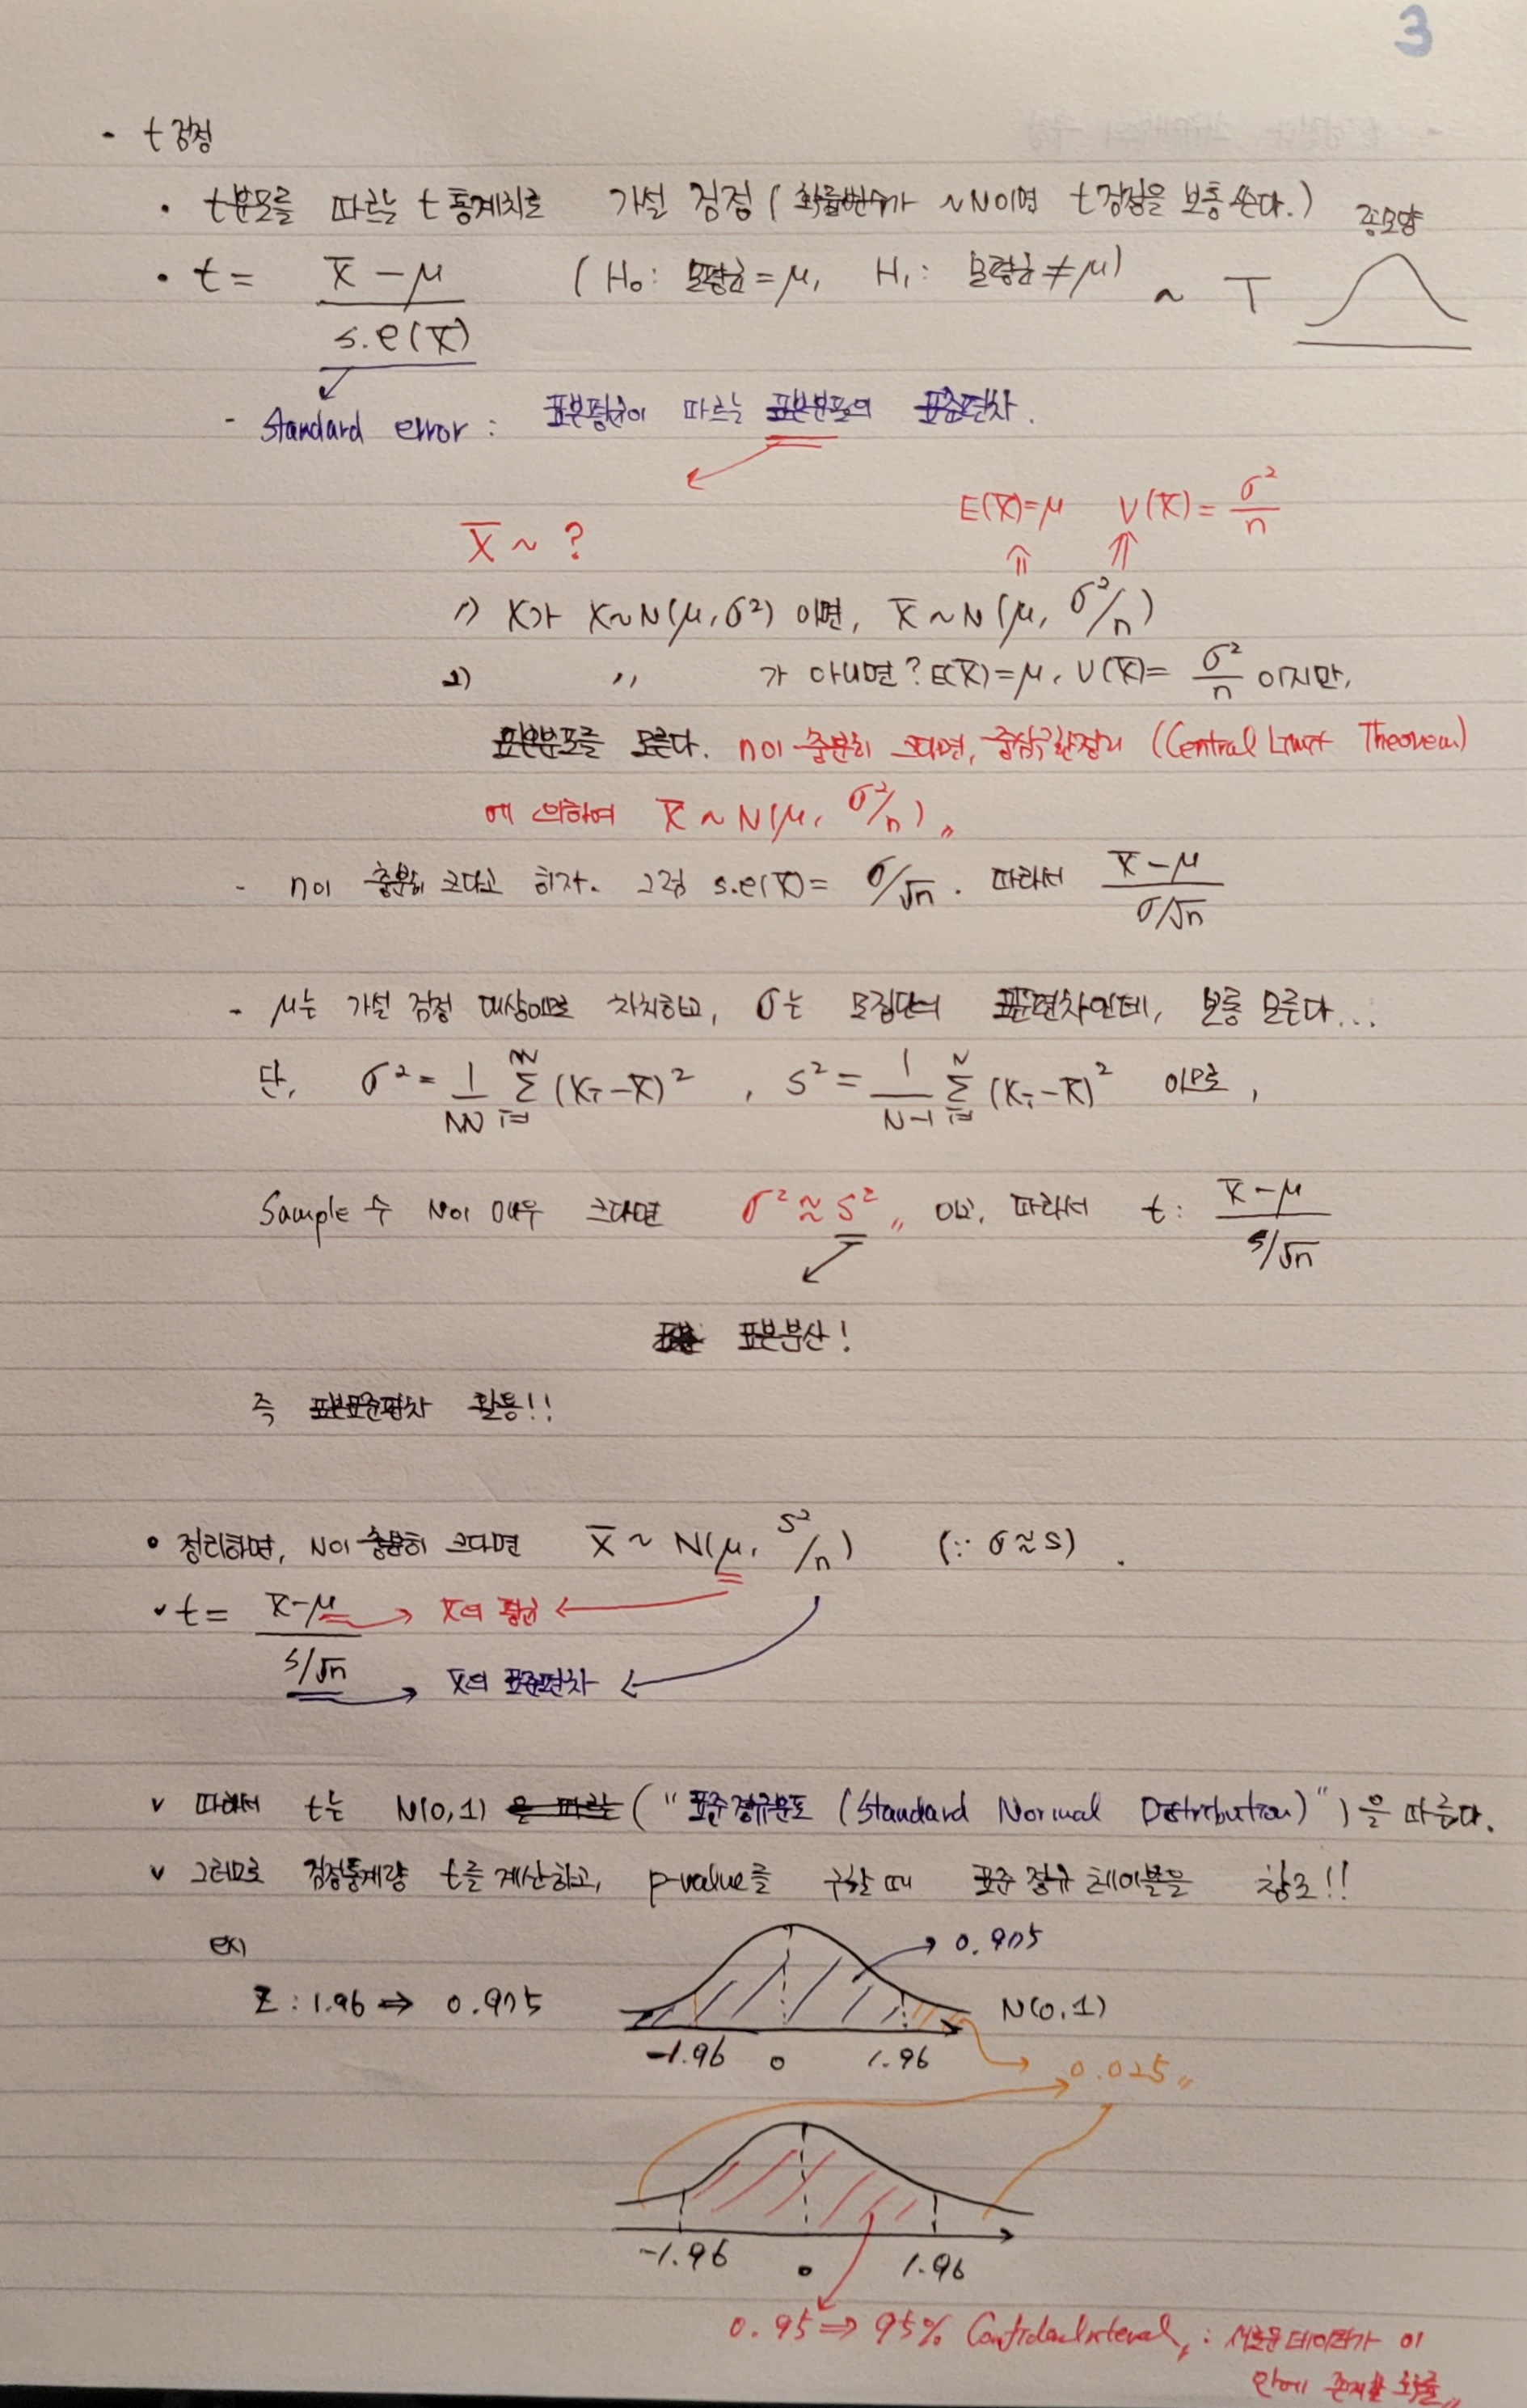 3
- t검정
• t분포를 따르는 t통계치로 가설 검정 ( 확률변수가 ~N이면 t검정을 보통 쓴다.)
종모양
• t = X̄ - μ / s.e(X̄) (H₀: 모평균=μ, H₁: 모평균≠μ) ~ T
- Standard error : 표본평균이 따르는 표본분포의 표준편차.
E(X̄)=μ V(X̄)= σ²/n
X̄ ~ ?
1) X가 X~N(μ,σ²) 이면, X̄~N(μ, σ²/n)
2) 〃 가 아니면? E(X̄)=μ, V(X̄)= σ²/n 이지만,
표본분포를 모른다. n이 충분히 크다면, 중심극한정리 (Central Limit Theorem)
에 의하여 X̄ ~ N(μ, σ²/n)〃
- n이 충분히 크다고 하자. 그럼 s.e(X̄)= σ/√n . 따라서 X̄-μ / σ/√n
- μ는 가설 검정 대상이므로 차치하고, σ는 모집단의 표준편차인데, 보통 모른다...
단, σ² = 1/N Σ (Xᵢ-X̄)² , s² = 1/N-1 Σ (Xᵢ-X̄)² 이므로,
Sample 수 N이 매우 크다면 σ²≈s²〃 이고, 따라서 t: X̄-μ / s/√n
표본분산!
즉 표본표준편차 활용!!
• 정리하면, N이 충분히 크다면 X̄ ~ N(μ, s²/n) (∵ σ≈s) .
✓ t = X̄-μ / s/√n → X̄의 평균 ←
→ X̄의 표준편차 ←
v 따라서 t는 N(0,1) ("표준정규분포 (Standard Normal Distribution)")을 따른다.
v 그러므로 검정통계량 t를 계산하고, p-value를 구할 때 표준 정규 테이블을 참조!!
ex)
→ 0.975
Z : 1.96 ⇒ 0.975
N(0,1)
-1.96 0 1.96
0.025〃
-1.96 0 1.96
0.95 ⇒ 95% Confidence Interval, : 새로운 데이터가 이
안에 존재할 확률〃